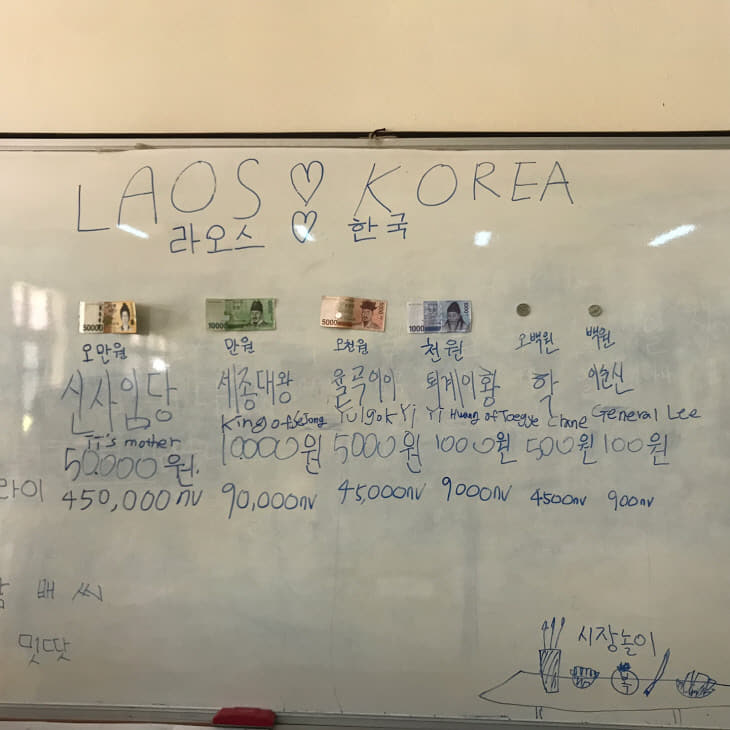 LAOS ♡ KOREA
라오스 ♡ 한국
50000 10000 5000 1000
오만원 만원 오천원 천원 오백원 백원
신사임당 세종대왕 율곡이이 퇴계이황 학 이순신
Yi's mother King of Sejong Yulgok Yi Yi Huang of Toegye Clane General Lee
50,000원. 10,000원 5000원 1000원 500원 100원
라이 450,000ກີບ 90,000ກີບ 45,000ກີບ 9000ກີບ 4500ກີບ 900ກີບ
배 씨
밋땃
시장놀이
복